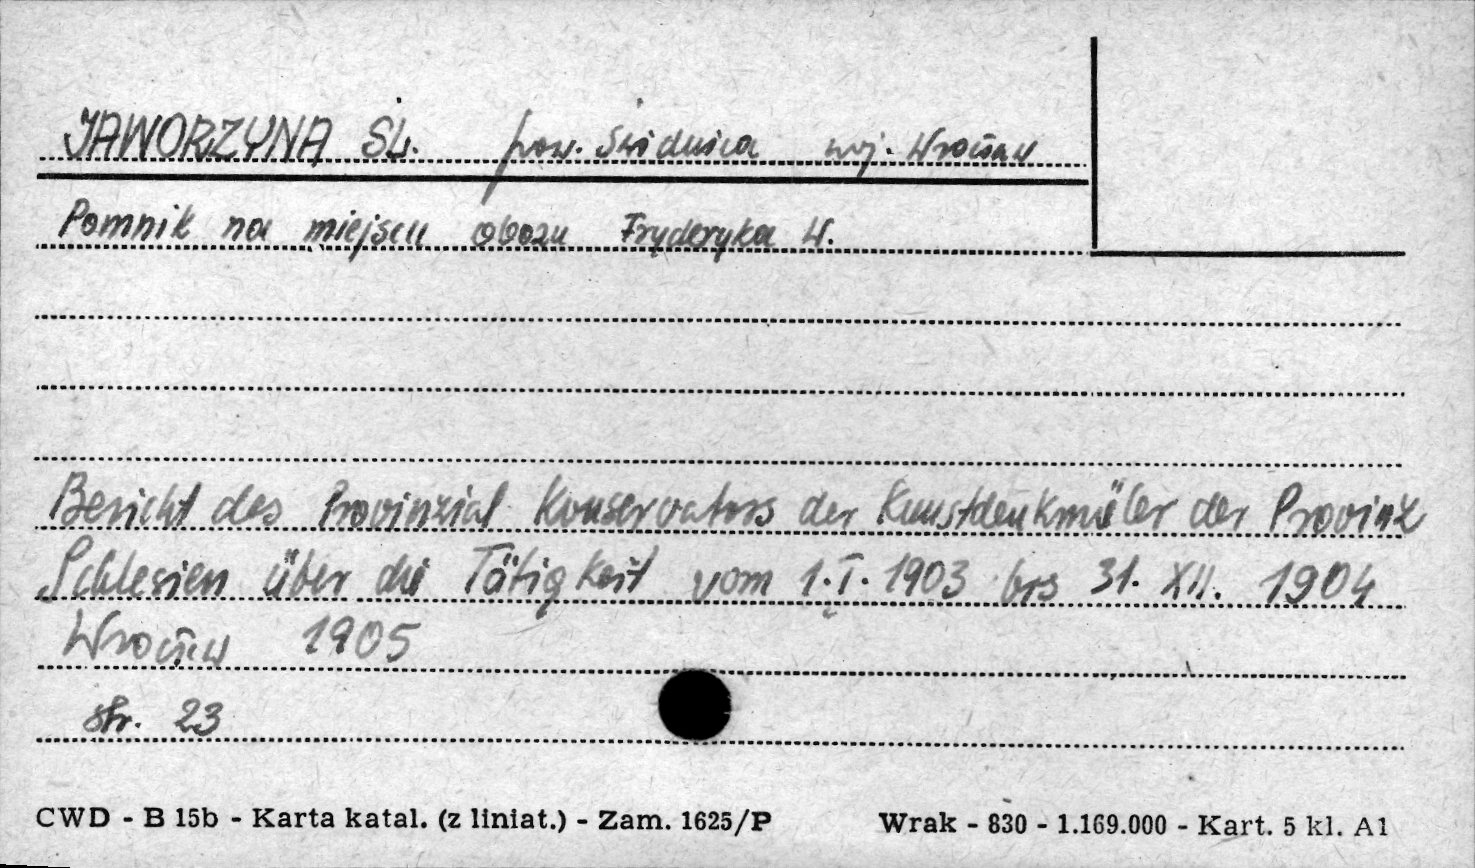 JAWORZYNA ŚL. pow. Świdnica woj. Wrocław
Pomnik na miejscu obozu Fryderyka W.
Bericht des Provinzial Konservators der Kunstdenkmäler der Provinz
Schlesien über die Tätigkeit vom 1.I.1903 bis 31.XII.1904
Wrocław 1905
str. 23
CWD - B 15b - Karta katal. (z liniat.) - Zam. 1625/P Wrak - 830 - 1.169.000 - Kart. 5 kl. A1